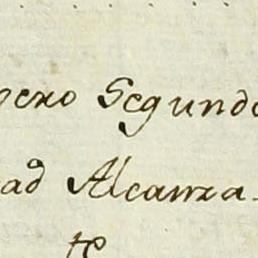 pero Segundo
ad Alcanza-
te